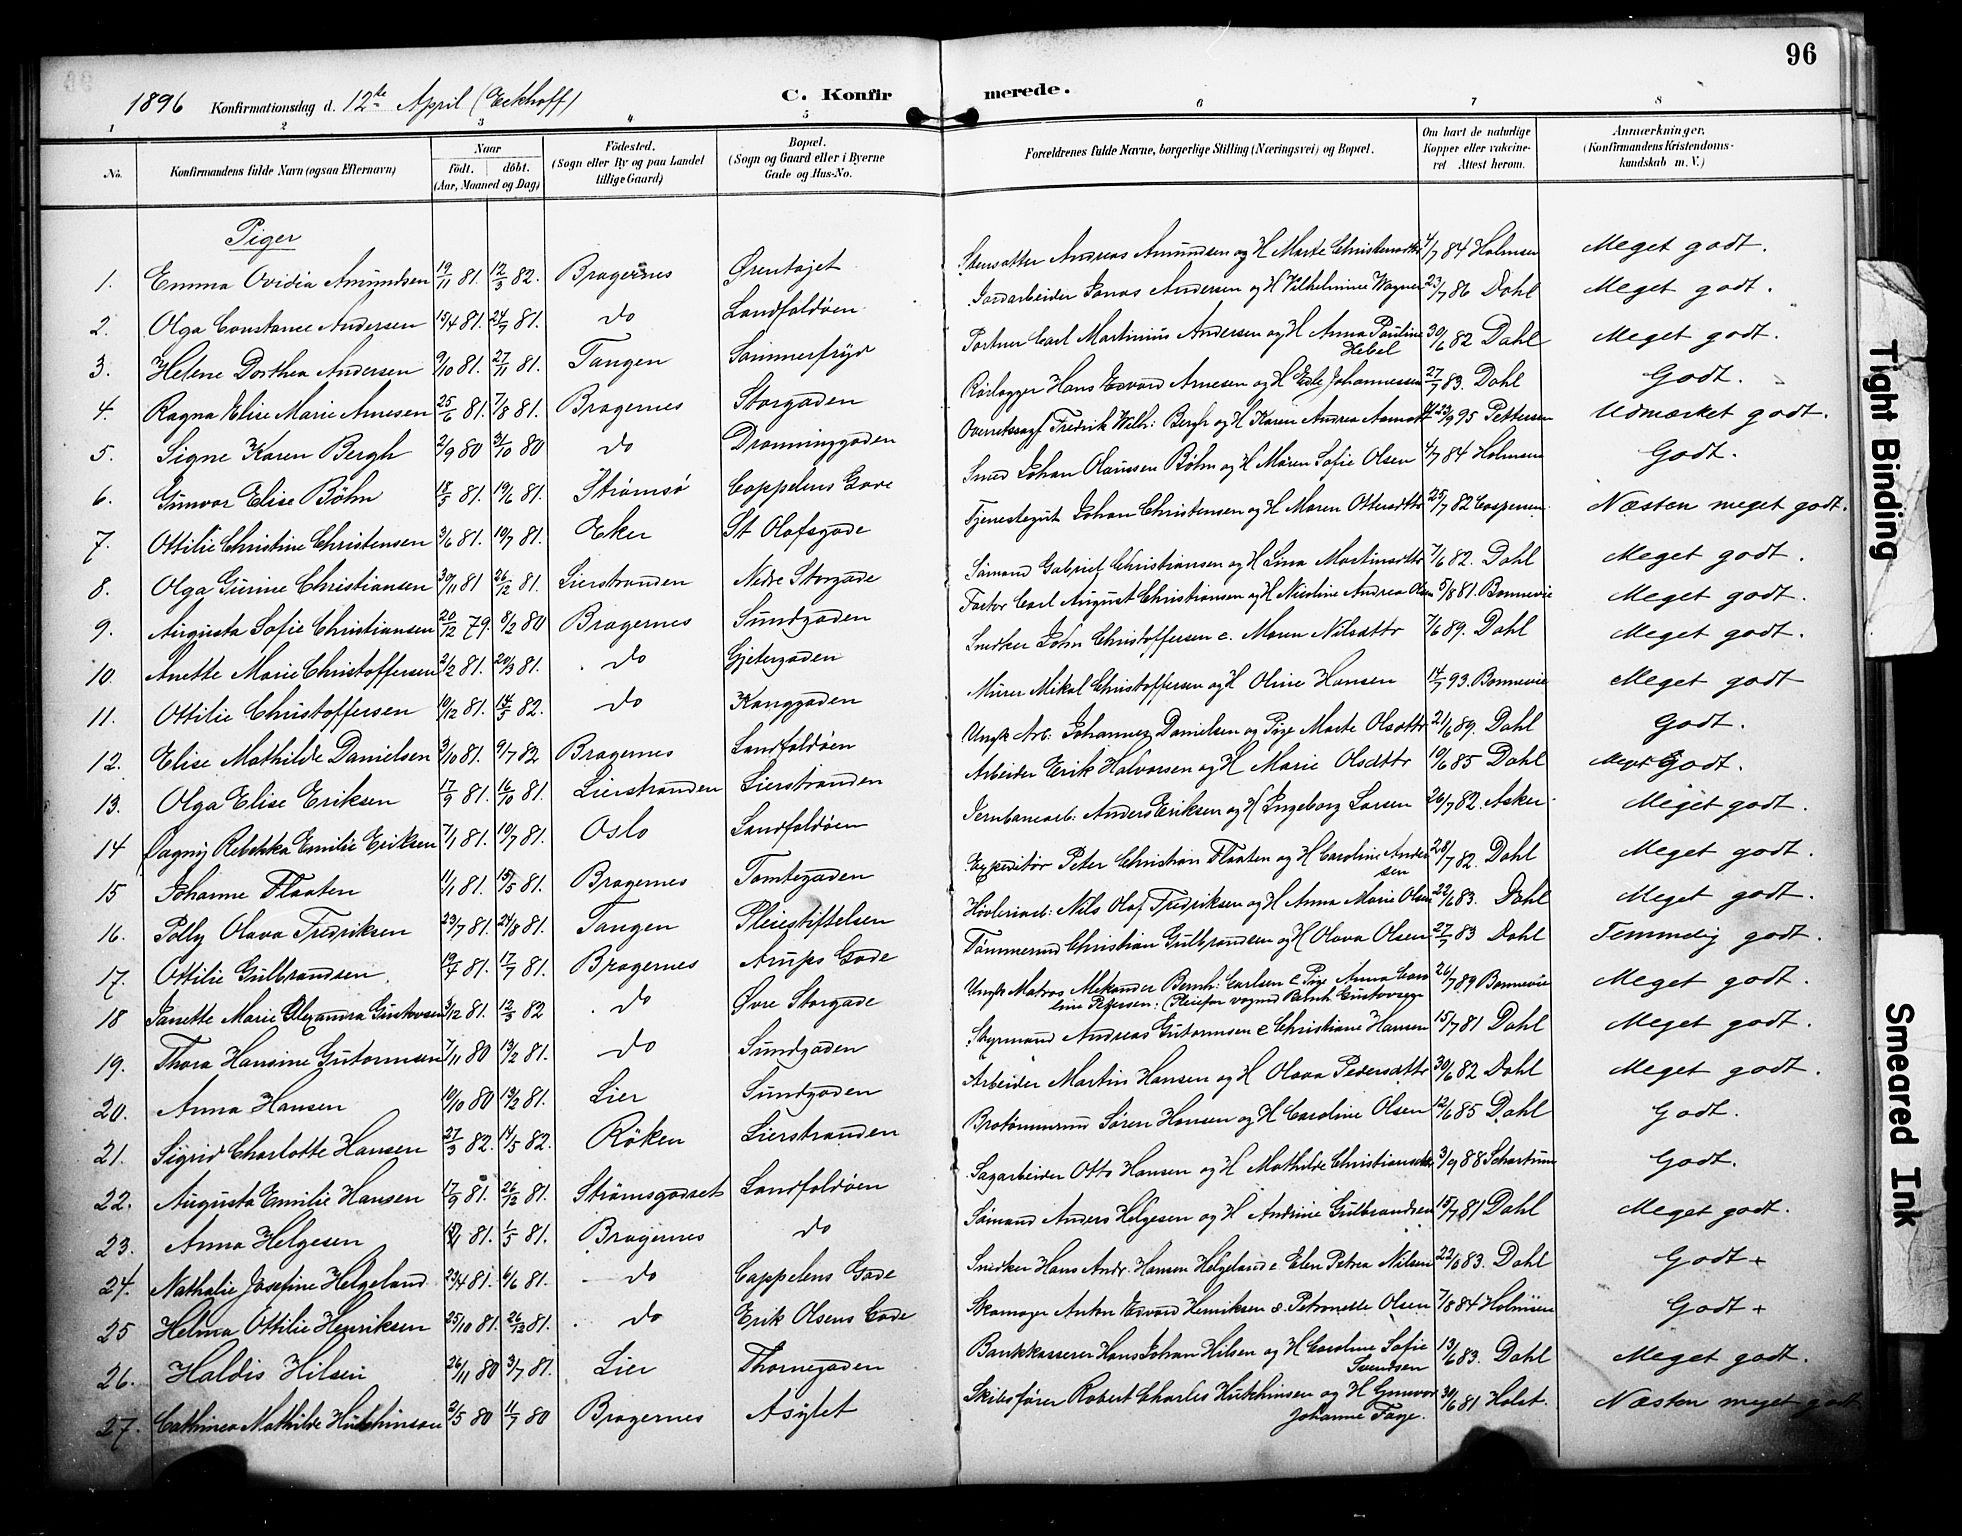 96
1896 Konfirmationsdag d. 12te April (Eckhoff)
C. Konfirmerede.
1 2 3 4 5 6 7 8
No. Konfirmandens fulde Navn (ogsaa Efternavn) Naar födt. döbt. (Aar, Maaned og Dag) Födested. (Sogn eller By og paa Landet tillige Gaard) Bopæl. (Sogn og Gaard eller i Byerne Gade og Hus-No. Forældrenes fulde Navne, borgerlige Stilling (Næringsvei) og Bopæl. Om havt de naturlige Kopper eller vaccineret Attest herom. Anmærkninger. (Konfirmandens Kristendomskundskab m. V.)
Piger
1. Emma Ovidia Amundsen 19/11 81. 12/3 82. Bragernes Ørentøjet Andreas Amundsen og H Marte Christensdttr 4/7 84 Holmsen Meget godt.
2. Olga Constance Andersen 15/4 81. 24/7 81. do Landfaldøen Jordarbeider Jonas Andersen og H Vilhelmine Wagner 23/7 86 Dahl Meget godt.
3. Helene Dorthea Andersen 9/10 81. 27/11 81. Tangen Sommerfryd Portner Carl Martinius Andersen og H Anna Pauline Hebel 30/6 82 Dahl Meget godt.
4. Ragna Elise Marie Arnesen 25/6 81. 7/8 81. Bragernes Storgaden Rørlægger Hans Edvard Arnesen og H Edle Johannessen 27/7 83. Dahl Godt.
5. Signe Karen Bergh 2/9 80 31/10 80 do Dronninggaden Overretssagf Fredrik Wilh: Bergh og H Karen Andrea 23/9 95 Pettersen Udmærket godt.
6. Gunvor Elise Bøhn 18/5 81. 19/6 81. Strømsø Cappelens Gade Smed Johan Olaussen Bøhn og H Maren Sofie Olsen 4/7 84 Holmsen Godt.
7. Ottilie Christine Christensen 3/6 81. 10/7 81. Eker St Olafsgade Tjenestegut Johan Christensen og H Maren Ottersdttr 25/7 82 Caspersen Næsten meget godt.
8. Olga Gurine Christiansen 30/11 81 26/12 81. Lierstranden Nedre Storgade Sømand Gabriel Christiansen og H Lina Martinsdttr 7/6 82. Dahl Meget godt.
9. Augusta Sofie Christiansen 20/12 79. 8/2 80 Bragernes Sundgaden Factor Carl August Christiansen og H Nicoline Andrea Olsen 5/8 81. Bonnevie Meget godt.
10. Anette Marie Christoffersen 2/2 81. 20/3 81. do Gjetergaden Snedker John Christoffersen e. Maren Nilsdttr 7/6 89. Dahl Meget godt.
11. Ottilie Christoffersen 10/12 81. 14/5 82. do Konggaden Murer Mikal Christoffersen og H Oline Hansen 14/7 93. Bonnevie Meget godt
12. Elise Mathilde Danielsen 3/10 81. 9/7 82 Bragernes Landfaldøen Ungk Arb: Johannes Danielsen og Pige Marte Olsdttr 21/6 89. Dahl Godt.
13. Olga Elise Eriksen 17/9 81. 16/10 81. Lierstranden Lierstranden Arbeider Erik Halvorsen og H Marie Olsdttr 10/6 85 Dahl Godt.
14 Dagny Rebekka Emilie Eriksen 7/1 81. 10/7 81. Oslo Landfaldøen Jernbanearb: Anders Eriksen og H Ingeborg Larsen 26/7 82. Asker. Meget godt.
15 Johanne Flaaten 11/1 81. 15/5 81. Bragernes Tomtegaden Expeditør Peter Christian Flaaten og H Caroline Andersen 28/7 82. Dahl Meget godt.
16. Polly Olava Fredriksen 23/7 81. 24/8 81. Tangen Pleiestiftelsen Høvleriarb: Nils Olaf Fredriksen og H Anna Marie Olsen 22/6 83. Dahl Meget godt.
17. Ottilie Gulbrandsen 19/4 81. 17/7 81. Bragernes Arups Gade Tømmermd Christian Gulbrandsen og H Olava Olsen 27/7 83 Dahl Temmelig godt.
18 Janette Marie Alexandra Gustavsen 3/12 81. 12/3 82 do Øvre Storgade Ungk Matros Alexander Bernh: Carlsen e Pige Anna Caroline Petersen: (Pleiefar vognmd Bernh Gustavsen 26/7 89 Bonnevie Meget godt.
19. Thora Hansine Gutormsen 7/11 80 13/2 81. do Sundgaden Styrmand Andreas Gutormsen e Christiane Hansen 15/7 81 Dahl Meget godt.
20. Anna Hansen 10/10 80 13/2 81. Lier Sundgaden Arbeider Martin Hansen og H Olava Pedersdttr 30/6 82 Dahl Meget godt.
21. Sigrid Charlotte Hansen 27/3 82. 14/5 82. Röken Lierstranden Søren Hansen og H Caroline Olsen 12/6 85 Dahl Godt.
22. Augusta Emilie Hansen 17/9 81. 26/12 81. Strömsgodset Landfaldøen Sagarbeider Otto Hansen og H Mathilde Christiansdttr 3/9 88 Schartum Godt.
23. Anna Helgesen 81. 1/5 81. Bragernes do Sømand Anders Helgesen og H Andrine Gulbrandsen 15/7 81 Dahl Meget godt.
24. Nathalie Josefine Helgeland 23/4 81. 6/6 81. do Cappelens Gade Snedker Hans Andr. Hansen Helgeland e Elen Petrea Nilsen 83. Dahl Godt +
25 Helma Ottilie Henriksen 25/10 81. 26/12 81. do Erik Olsens Gade Skomager Anton Edvard Henriksen e. Petronelle Olsen 7/8 84 Holmsen Godt +
26. Haldis Hilsen 26/11 80 3/7 81. Lier Thornegaden Bankkasserer Hans Johan Hilsen og H Caroline Sofie Svendsen 13/6 83. Dahl Meget godt.
27. Cathinca Mathilde Hutchinson 2/5 80 11/7 80 Bragernes Asylet Skibsfører Robert Charles Hutchinson og H Gunvor Johanne Faye. 30/6 81 Holst. Næsten meget godt
Tight Binding
Smeared Ink